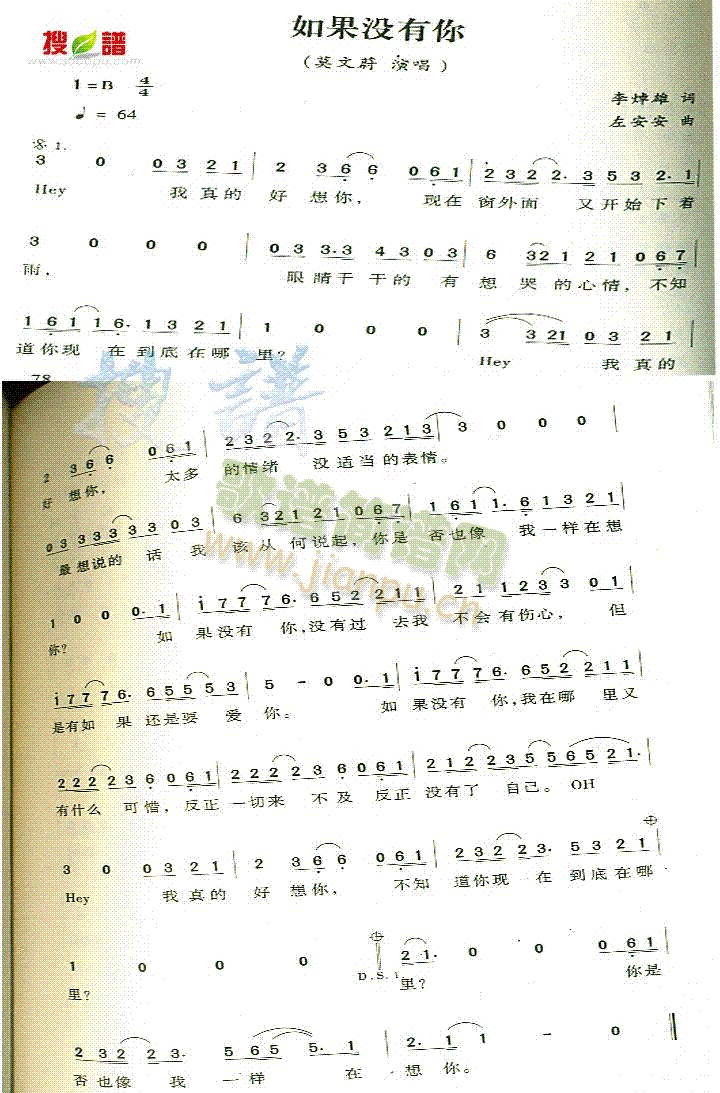 搜譜
www.sooopu.com
如果没有你
(莫文蔚 演唱)
1=B 4/4
♩= 64
李焯雄 词
左安安 曲
1.
3 0 0 3 2 1 | 2 3 6 6 0 6 1 | 2 3 2 2. 3 5 3 2. 1
Hey 我真的 好 想你, 现在 窗外面 又开始下着
3 0 0 0 | 0 3 3.3 4 3 0 3 | 6 3 2 1 2 1 0 6 7
雨, 眼睛干干的 有 想哭的心情, 不知
1 6 1 1 6. 1 3 2 1 | 1 0 0 0 | 3 3 21 0 3 2 1
道你现 在到底在哪 里? Hey 我真的
78
2 3 6 6 0 6 1 | 2 3 2 2. 3 5 3 2 1 3 | 3 0 0 0
好 想你, 太多 的情绪 没适当的表情。
0 3 3 3 3 3 3 3 0 3 | 6 3 2 1 2 1 0 6 7 | 1 6 1 1. 6 1 3 2 1
最想说的 话 我 该从 何说起, 你是 否也像 我一样在想
1 0 0 0. 1 | i 7 7 7 7 6. 6 5 2 2 1 1 | 2 1 1 2 3 3 0 1
你? 如 果没有 你,没有过 去我 不会有伤心, 但
i 7 7 7 6. 6 5 5 5 3 | 5 - 0 0. 1 | i 7 7 7 6. 6 5 2 2 1 1
是有如 果 还是要 爱 你。 如 果没有 你,我在哪 里又
2 2 2 2 3 6 0 6 1 | 2 2 2 2 3 6 0 6 1 | 2 1 2 2 3 5 5 6 5 2 1.
有什么 可惜, 反正 一切来 不及 反正 没有了 自己。OH
3 0 0 3 2 1 | 2 3 6 6 0 6 1 | 2 3 2 2 3. 5 3 2 1
Hey 我真的 好 想你, 不知 道你现 在 到底在哪
1 0 0 0 | 2 1. 0 0 0 6 1
里? D.S.1 里? 你是
2 3 2 2 3. 5 6 5 5. 1 | 2. 1 1 - 0
否也像 我 一样 在 想 你。
歌谱简谱网
www.jianpu.cn